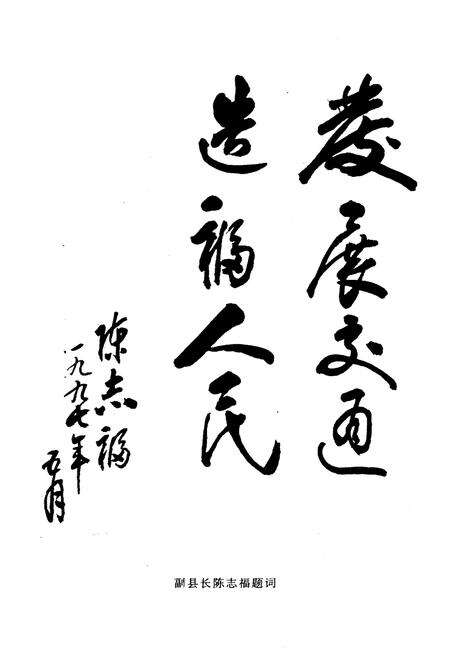 發展交通
造福人民
陈志福
一九九七年
五月
副县长陈志福题词